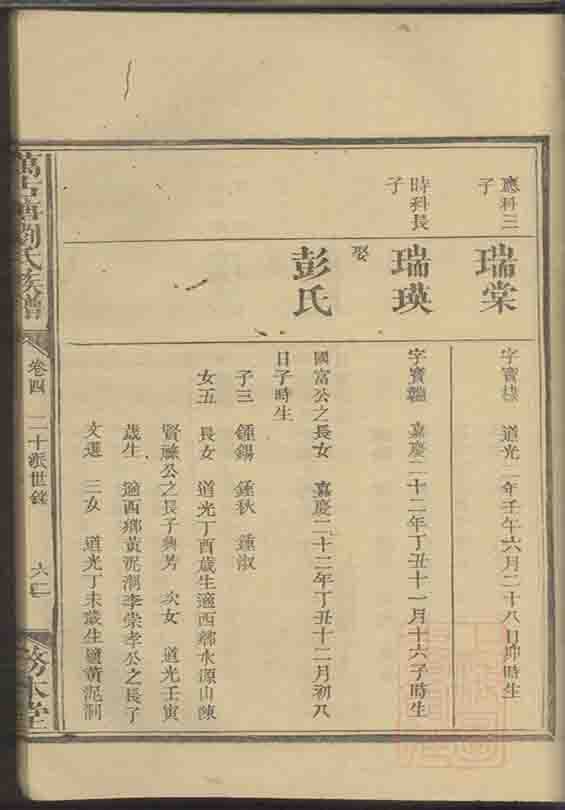 應科三子
瑞棠
字寶棣 道光二年壬午六月二十八日坤時生
時科長子
瑞瑛
字寶 嘉慶二十二年丁丑十一月十六子時生
娶
彭氏
國富公之長女 嘉慶二十二年丁丑十二月初八
日子時生
子三 鍾錫 鍾秋 鍾淑
女五 長女 道光丁酉歲生適西鄉水源山陳
賢 公之長子典芳 次女 道光壬寅
歲生 適西鄉黃泥洞李崇孝公之長子
文選 三女 道光丁未歲生適黃泥洞
萬古塘劉氏族譜
卷四 二十派世錄
六二
務本堂